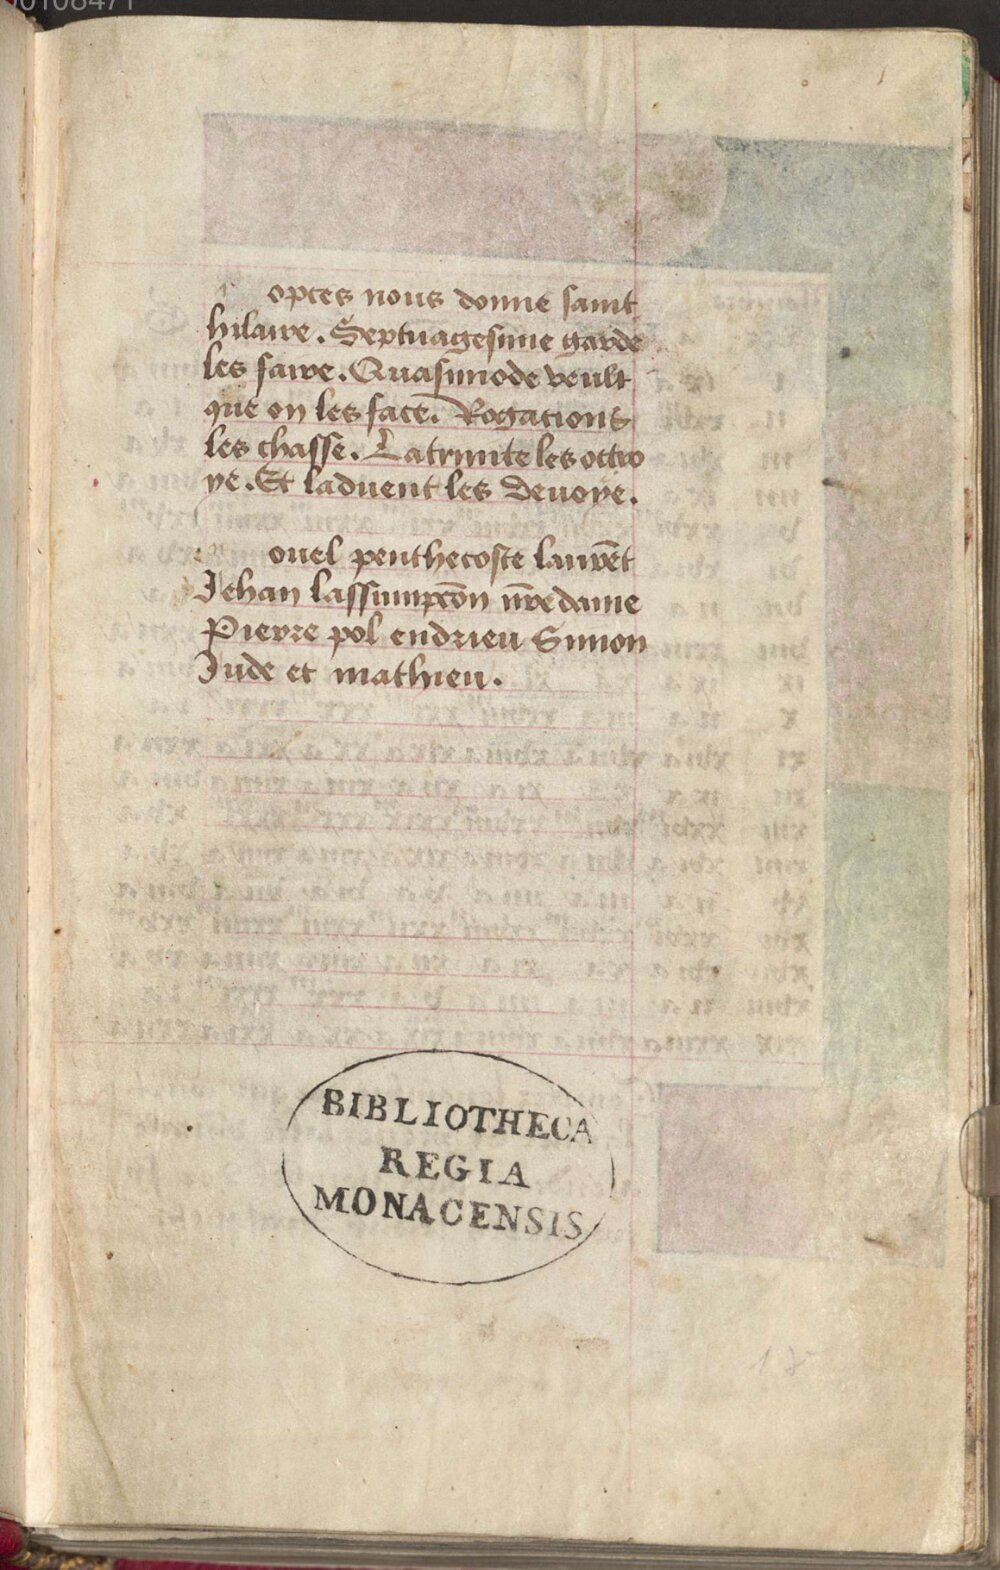 opces nous donne saint
hilaire. Septuagesime garde
les faire. Quasimode veult
que on les face. Rogacions
les chasse. La trinite les octro
ye. Et laduent les devoye.
ouel penthecoste laurēt
Jehan lassumpcōn nr̄e dame
Pierre pol endrieu Simon
Jude et mathieu.
BIBLIOTHECA
REGIA
MONACENSIS